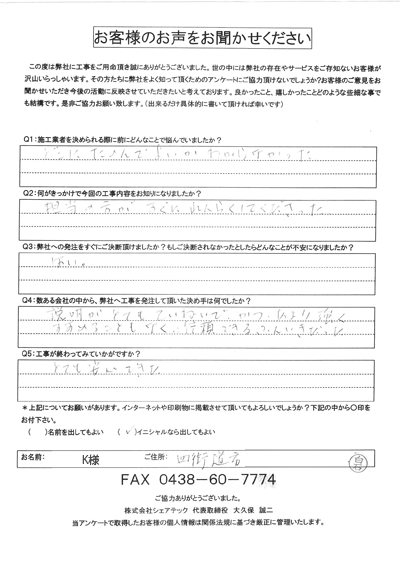 お客様のお声をお聞かせください
この度は弊社に工事をご用命頂き誠にありがとうございました。世の中には弊社の存在やサービスをご存知ないお客様が
沢山いらっしゃいます。その方たちに弊社をよく知って頂くためのアンケートにご協力頂けないでしょうか?お客様のご意見をお
聞かせいただき今後の活動に反映させていただきたいと考えております。良かったこと、嬉しかったことどのような些細な事で
も結構です。是非ご協力お願い致します。(出来るだけ具体的に書いて頂ければ幸いです)
Q1:施工業者を決められる際に前にどんなことで悩んでいましたか?
たのんでよいかわからなかった
Q2:何がきっかけで今回の工事内容をお知りになりましたか?
担当の方がすぐに
Q3:弊社への発注をすぐにご決断頂けましたか?もしご決断されなかったとしたらどんなことが不安になりましたか?
はい。
Q4:数ある会社の中から、弊社へ工事を発注して頂いた決め手は何でしたか?
説明がとてもていねいで、かつ、あまり強く
すすめることもなく、信頼できるふんいきだった
Q5:工事が終わってみていかがですか?
とても安心できた
*上記についてお願いがあります。インターネットや印刷物に掲載させて頂いてもよろしいでしょうか?下記の中から〇印を
お付下さい。
( )名前を出してもよい (✓)イニシャルなら出してもよい
お名前: K様 ご住所: 四街道市
FAX 0438-60-7774
ご協力ありがとうございました。
株式会社シェアテック 代表取締役 大久保 誠二
当アンケートで取得したお客様の個人情報は関係法規に基づき厳正に管理いたします。